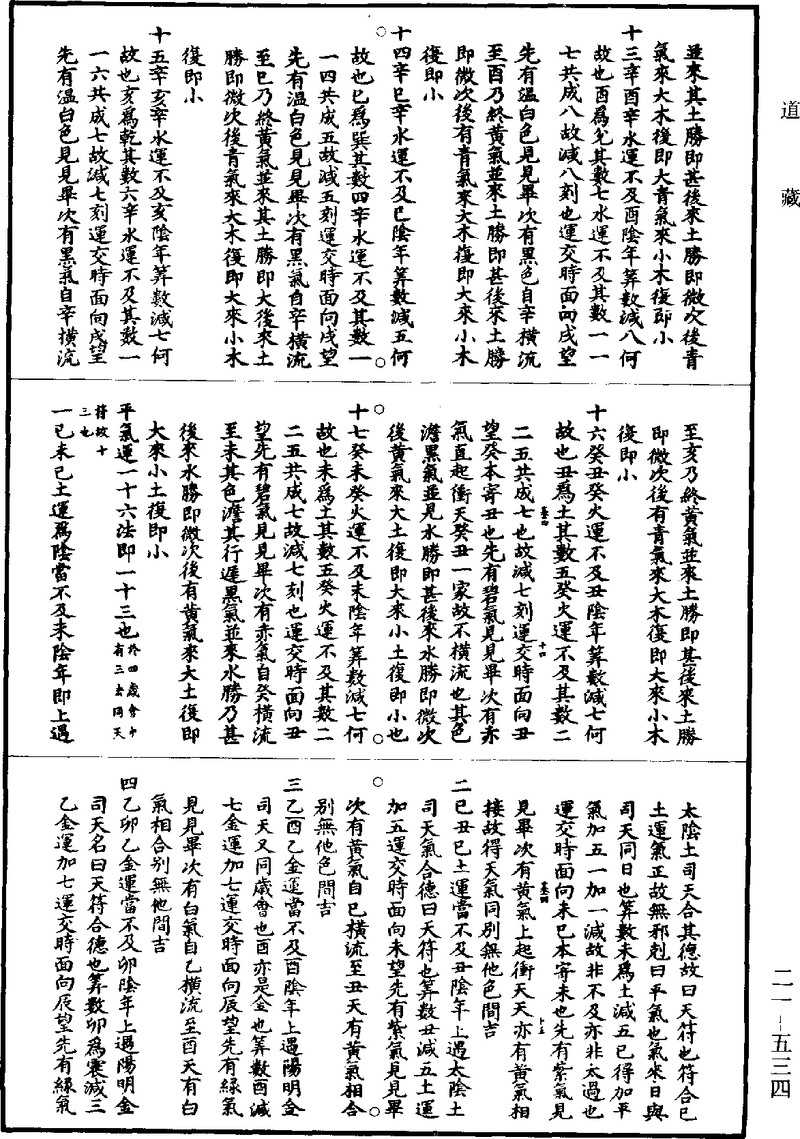 道藏
並來其土勝即甚後來土勝即微次後青
氣來大木復即大青氣來小木復即小
十三辛酉辛水運不及酉陰年筭數減八何
故也酉爲兊其數七水運不及其數一一
七共成八故減八刻也運交時面向戌望
先有溫白色見見畢次有黑色自辛橫流
至酉乃終黃氣並來土勝即甚後來土勝
即微次後有青氣來大木復即大來小木
復即小
十四辛巳辛水運不及巳陰年筭數減五何
故也巳爲巽其數四辛水運不及其數一
一四共成五故減五刻運交時面向戌望
先有溫白色見見畢次有黑氣自辛橫流
至巳乃終黃氣並來其土勝即大後來土
勝即微次後青氣來大木復即大來小木
復即小
十五辛亥辛水運不及亥陰年筭數減七何
故也亥爲乾其數六辛水運不及其數一
一六共成七故減七刻運交時面向戌望
先有溫白色見見畢次有黑氣自辛橫流
至亥乃終黃氣並來土勝即甚後來土勝
即微次後有青氣來大木復即大來小木
復即小
十六癸丑癸火運不及丑陰年筭數減七何
故也丑爲土其數五癸火運不及其數二
二五共成七也故減七刻運交時面向丑
望癸本寄丑也先有碧氣見見畢次有赤
氣直起衝天癸丑一家故不橫流也其色
澹黑氣並見水勝即甚後來水勝即微次
後黃氣來大土復即大來小土復即小也
十七癸未癸火運不及未陰年筭數減七何
故也未爲土其數五癸火運不及其數二
二五共成七故減七刻也運交時面向丑
望先有碧氣見見畢次有赤氣自癸橫流
至未其色澹其行遲黑氣並來水勝乃甚
後來水勝即微次後有黃氣來大土復即
大來小土復即小
平氣運一十六法即一十三也於四歲會中有三去同天符故十三也
一己未己土運爲陰當不及未陰年即上遇
太陰土司天合其德故曰天符也符合己
土運氣正故無邪剋曰平氣也氣來日與
司天同日也筭數未爲土減五己得加平
氣加五一加一減故非不及亦非太過也
運交時面向未己本寄未也先有紫氣見
見畢次有黃氣上起衝天天亦有黃氣相
接故得天氣同別無他色間吉
二己丑己土運當不及丑陰年上遇太陰土
司天氣合德曰天符也筭數丑減五土運
加五運交時面向未望先有紫氣見見畢
次有黃氣自己橫流至丑天有黃氣相合
別無他色間吉
三乙酉乙金運當不及酉陰年上遇陽明金
司天又同歲會也酉亦是金也筭數酉減
七金運加七運交時面向辰望先有綠氣
見見畢次有白氣自乙橫流至酉天有白
氣相合別無他間吉
四乙卯乙金運當不及卯陰年上遇陽明金
司天名曰天符合德也筭數卯爲震減三
乙金運加七運交時面向辰望先有綠氣
二一-五三四